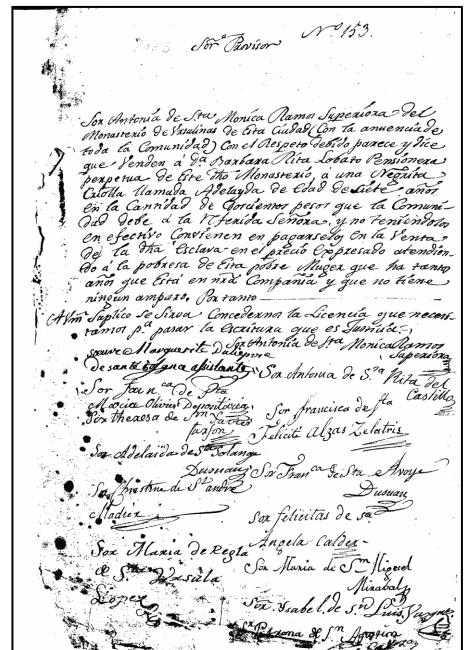 Nº 153.
Sor. Provisor
Sor Antonia de Sta Monica Ramos Superiora del
Monasterio de Ursulinas de Esta Ciudad (Con la anuencia de
toda la Comunidad) Con el Respeto debido parece y dice
que Venden á Da Barbara Rita Lobato Pensionera
perpetua de Este dho Monasterio, a una Negrita
Criolla llamada Adelayda de Edad de siete años
en la Cantidad de Dorcientos pesos que la Comuni-
dad debe á la Referida Señora, y no teniendolos
en efectivo Convienen en pagarselos En la Venta
de la dha Esclava en el precio Expresado atendien-
do á la pobresa de Esta pobre Muger que ha tantos
años que Está en nra Compañia y que no tiene
ningun amparo, Por tanto
A Vm Suplico se Sirva Concederno la Licencia que necesi-
tamos pa pasar la Escritura que es Justicia
Sor Antonia de Sta Monica Ramos
Superiora
soeur Marguerite
de sante assistante
Sor Antonia de Sta Rita del
Castillo
Sor Franca de Sta
Maria Olivier Depositaria
Sor Theresa de Sn
Sor francisca de Sta
Felicité Alzas Zelatris
Sor Adelaida de Sta Solange
Dusuau
Sor Franca de Sta Avoye
Dusuau
Sor de St andré
Madier
Sor felicitas de Sta
Angela Calder
Sor Maria de Regla
de Sta Ursula
Lopez
Sor Maria de Sn Migel
Mirabal
Sor Ysabel de Sn Luis
Sor Petrona de Sn Agustin